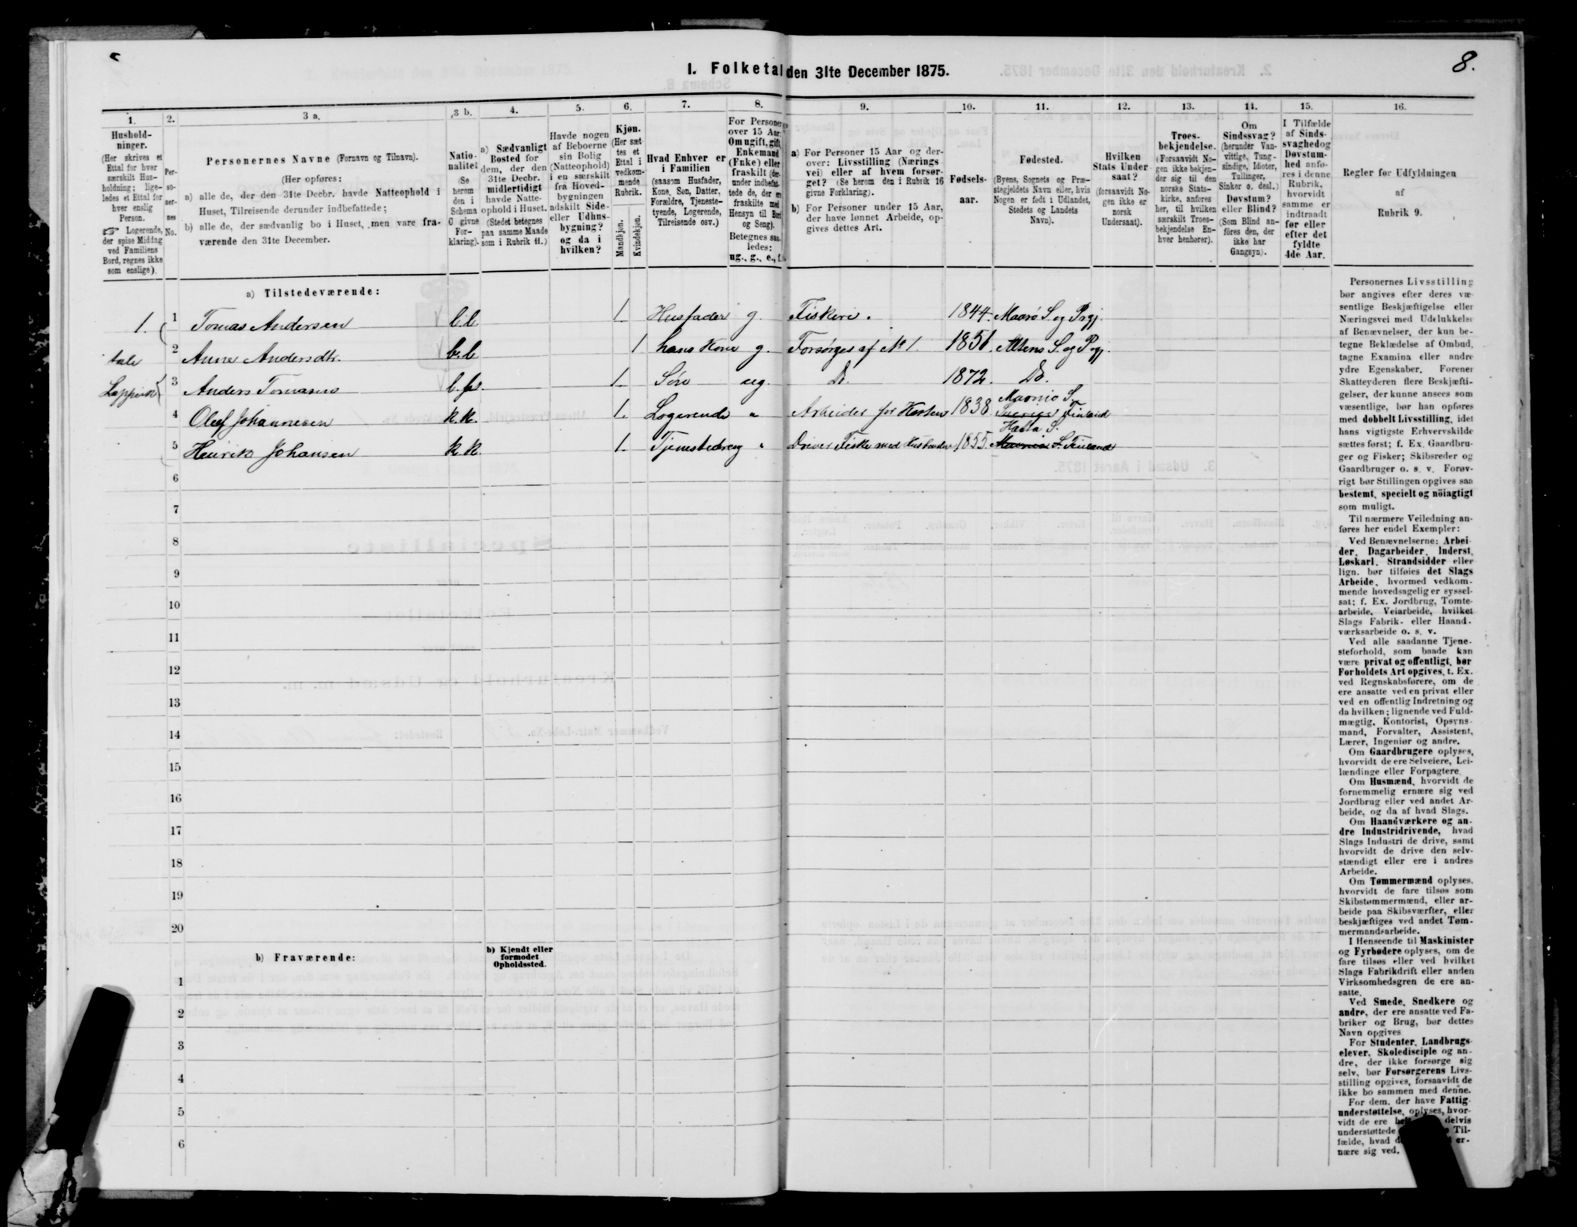 8.
1. Folketal den 31te December 1875.
1.
Hushold-
ninger.
(Her skrives et
Ettal for hver
særskilt Hus-
holdning; lige-
ledes et Ettal for
hver enslig
Person.
☞ Logerende,
der spise Middag
ved Familiens
Bord, regnes ikke
som enslige).
2.
Per-
so-
ner-
nes
No.
3 a.
Personernes Navne (Fornavn og Tilnavn).
(Her opføres:
a) alle de, der den 31te Decbr. havde Natteophold i
Huset, Tilreisende derunder indbefattede;
b) alle de, der sædvanlig bo i Huset, men vare fra-
værende den 31te December.
3 b.
Natio-
nalitet
(Se
herom
den i
Schema
O givne
For-
klaring).
4.
a) Sædvanligt
Bosted for
dem, der den
31te Decbr.
midlertidigt
havde Natte-
ophold i Huset.
(Stedet betegnes
paa samme Maade
som i Rubrik 11.)
5.
Havde nogen
af Beboerne
sin Bolig
(Natteophold)
i en særskilt
fra Hoved-
bygningen
adskilt Side-
eller Udhus-
bygning?
og da i
hvilken?
6.
Kjøn.
(Her sæt
tes et
Ettal i
vedkom-
mende
Rubrik.
Mandkjøn.
Kvindekjøn.
7.
Hvad Enhver er
i Familien
(saasom Husfader,
Kone, Søn, Datter,
Forældre, Tjeneste-
tyende, Logerende,
Tilreisende osv.)
8.
For Personer
over 15 Aar:
Om ugift, gift,
Enkemand
(Enke) eller
fraskilt (der-
under indbefat-
tede de, der ere
fraskilte med
Hensyn til Bord
og Seng).
Betegnes saa-
ledes:
ug., g., e., f.
9.
a) For Personer 15 Aar og der-
over: Livsstilling (Nærings
vei) eller af hvem forsør-
get? (Se herom den i Rubrik 16
givne Forklaring).
b) For Personer under 15 Aar,
der have lønnet Arbeide, op-
gives dettes Art.
10.
Fødsels-
aar.
11.
Fødested.
(Byens, Sognets og Præ-
stegjeldets Navn eller, hvis
Nogen er født i Udlandet,
Stedets og Landets
Navn).
12.
Hvilken
Stats Under
saat?
(forsaavidt No-
gen ikke er
norsk
Undersaat).
13.
Troes-
bekjendelse.
(Forsaavidt No-
gen ikke bekjen-
der sig til den
norske Stats-
kirke, anføres
her, til hvilken
særskilt Troes-
bekjendelse En-
hver henhører).
14.
Om
Sindssvag?
(herunder Van-
vittige, Tung-
sindige, Idioter,
Tullinger,
Sinker o. desl.)
Døvstum?
eller Blind?
(Som Blind an-
føres den, der
ikke har
Gangsyn).
15.
I Tilfælde
af Sinds-
svaghed og
Døvstum-
hed anfø-
res i denne
Rubrik,
hvorvidt
samme er
indtraadt
før eller
efter det
fyldte
4de Aar.
16.
Regler for Udfyldningen
af
Rubrik 9.
a) Tilstedeværende:
1. 1 Tomas Andersen b.b 1. Husfader g. Fiskeri. 1844. Maasø S. og Prgj.
tale 2 Anne Andersdtr. b.b 1 hans Kone g. Forsørges af N 1 1851 Altens S. og Prgj.
3 Anders Tomasen 1. Søn ug. Do. 1872. Do.
Muonio S.
4 Olef Johannesen k.k. 1. Logerende " Arbeider for Husher 1838 Finland
5 Henrik Johansen k.k. 1. Driver Fiske med 1855.
6
7
8
9
10
11
12
13
14
15
16
17
18
19
20
b) Fraværende:
b) Kjendt eller
formodet
Opholdssted.
1
2
3
4
5
6
Personernes Livsstilling
bør angives efter deres væ
sentlige Beskjæftigelse eller
Næringsvei med Udelukkelse
af Benævnelser, der kun be-
tegne Beklædelse af Ombud,
tagne Examina eller andre
ydre Egenskaber. Forener
Skatteyderen flere Beskjæfti-
gelser, der kunne ansees som
væsentlige, bør han opføres
med dobbelt Livsstilling, idet
hans vigtigste Erhvervskilde
sættes først; f. Ex. Gaardbru-
ger og Fisker; Skibsreder og
Gaardbruger o. s. v. Forøv-
rigt bør Stillingen opgives saa
bestemt, specielt og nöiagtigt
som muligt.
Til nærmere Veiledning an-
føres her endel Exempler:
Ved Benævnelserne: Arbei
der, Dagarbeider, Inderst,
Løskarl, Strandsidder eller
lign. bør tilføies det Slags
Arbeide, hvormed vedkom-
mende hovedsagelig er syssel-
sat; f. Ex. Jordbrug, Tomte-
arbeide, Veiarbeide, hvilket
Slags Fabrik- eller Haand-
værksarbeide o. s. v.
Ved alle saadanne Tjene-
steforhold, som baade kan
være privat og offentligt, bør
Forholdets Art opgives, t. Ex.
ved Regnskabsførere, om de
ere ansatte ved en privat eller
ved en offentlig Indretning og
da hvilken; lignende ved Fuld-
mægtig, Kontorist, Opsyns-
mand, Forvalter, Assistent,
Lærer, Ingeniør og andre.
Om Gaardbrugere oplyses,
hvorvidt de ere Selveiere, Lei-
lændinge eller Forpagtere.
Om Husmænd, hvorvidt de
fornemmelig ernære sig ved
Jordbrug eller ved andet Ar-
beide, og da af hvad Slags.
Om Haandværkere og an-
dre Industridrivende, hvad
Slags Industri de drive, samt
hvorvidt de drive den selv-
stændigt eller ere i andres
Arbeide.
Om Tømmermænd oplyses,
hvorvidt de fare tilsøs som
Skibstømmermænd, eller ar-
beide paa Skibsværfter, eller
beskjæftiges ved andet Tøm-
mermandsarbeide.
I Henseende til Maskinister
og Fyrbødere oplyses, om de
fare tilsøs eller ved hvilket
Slags Fabrikdrift eller anden
Virksomhedsgren de ere an-
satte.
Ved Smede, Snedkere og
andre, der ere ansatte ved Fa-
briker og Brug, bør dettes
Navn opgives
For Studenter, Landbrugs-
elever, Skoledisciple og an-
dre, der ikke forsørge sig
selv, bør Forsørgerens Livs-
stilling opgives, forsaavidt de
ikke bo sammen med denne.
For dem, der have Fattig-
understøttelse, oplyses, hvor-
vidt de ere delvis
understøttede Til-
fælde, hvad er-
nære sig ved.